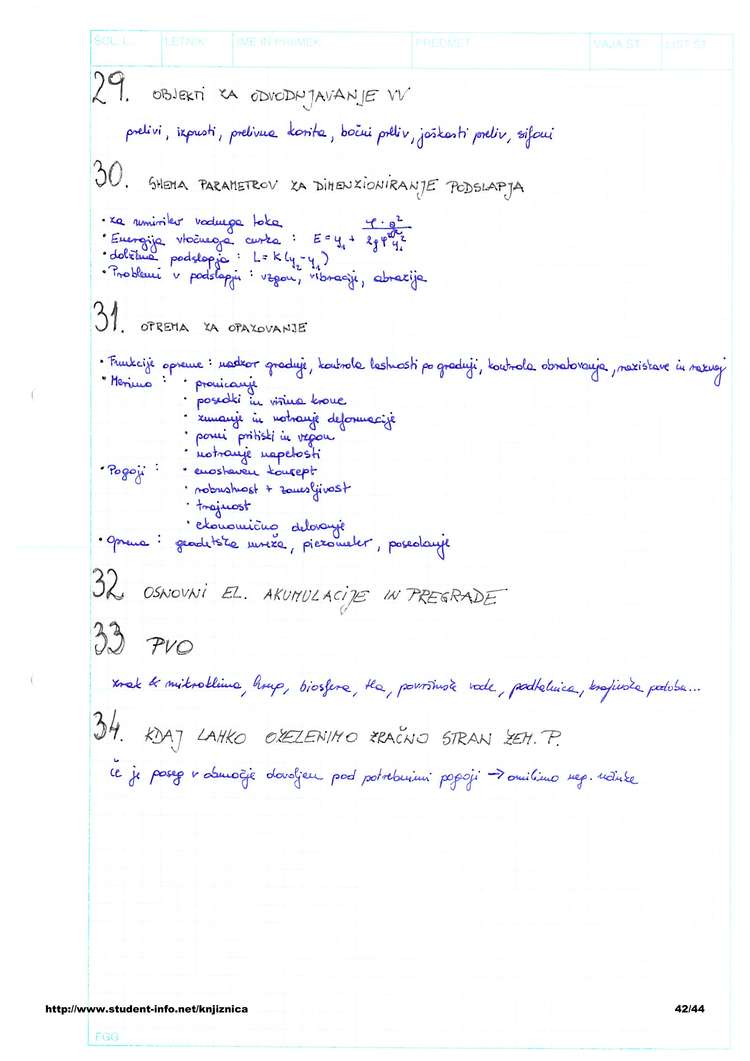 ŠOL. L.. LETNIK IME IN PRIIMEK PREDMET VAJA ŠT. LIST ŠT.
29. OBJEKTI ZA ODVODNJAVANJE VV
prelivi, izpusti, prelivna korita, bočni preliv, jaškasti preliv, sifoni
30. SHEMA PARAMETROV ZA DIMENZIONIRANJE PODSLAPJA
• za umiritev vodnega toka
• Energija vtočnega curka : E = y₁ +
• dolžina podslapja : L = K(y₂ - y₁)
• Problemi v podslapju : vzgon, vibracije, abrazija
31. OPREMA ZA OPAZOVANJE
• Funkcije opreme : nadzor gradnje, kontrola lastnosti po gradnji, kontrola obratovanja, raziskave in razvoj
• Merimo : • pronicanje
• posedki in višina krone
• zunanje in notranje deformacije
• porni pritiski in vzgon
• notranje napetosti
• Pogoji : • enostaven koncept
• robustnost + zanesljivost
• trajnost
• ekonomično delovanje
• Oprema : geodetska mreža, piezometer, posedanje
32 OSNOVNI EL. AKUMULACIJE IN PREGRADE
33 PVO
zrak & mikroklima, hrup, biosfera, tla, površinske vode, podtalnica, krajinska podoba...
34. KDAJ LAHKO OZELENIMO ZRAČNO STRAN ZEM. P.
če je poseg v območje dovoljen pod potrebnimi pogoji → omilimo neg. učinke
http://www.student-info.net/knjiznica 42/44
FGG